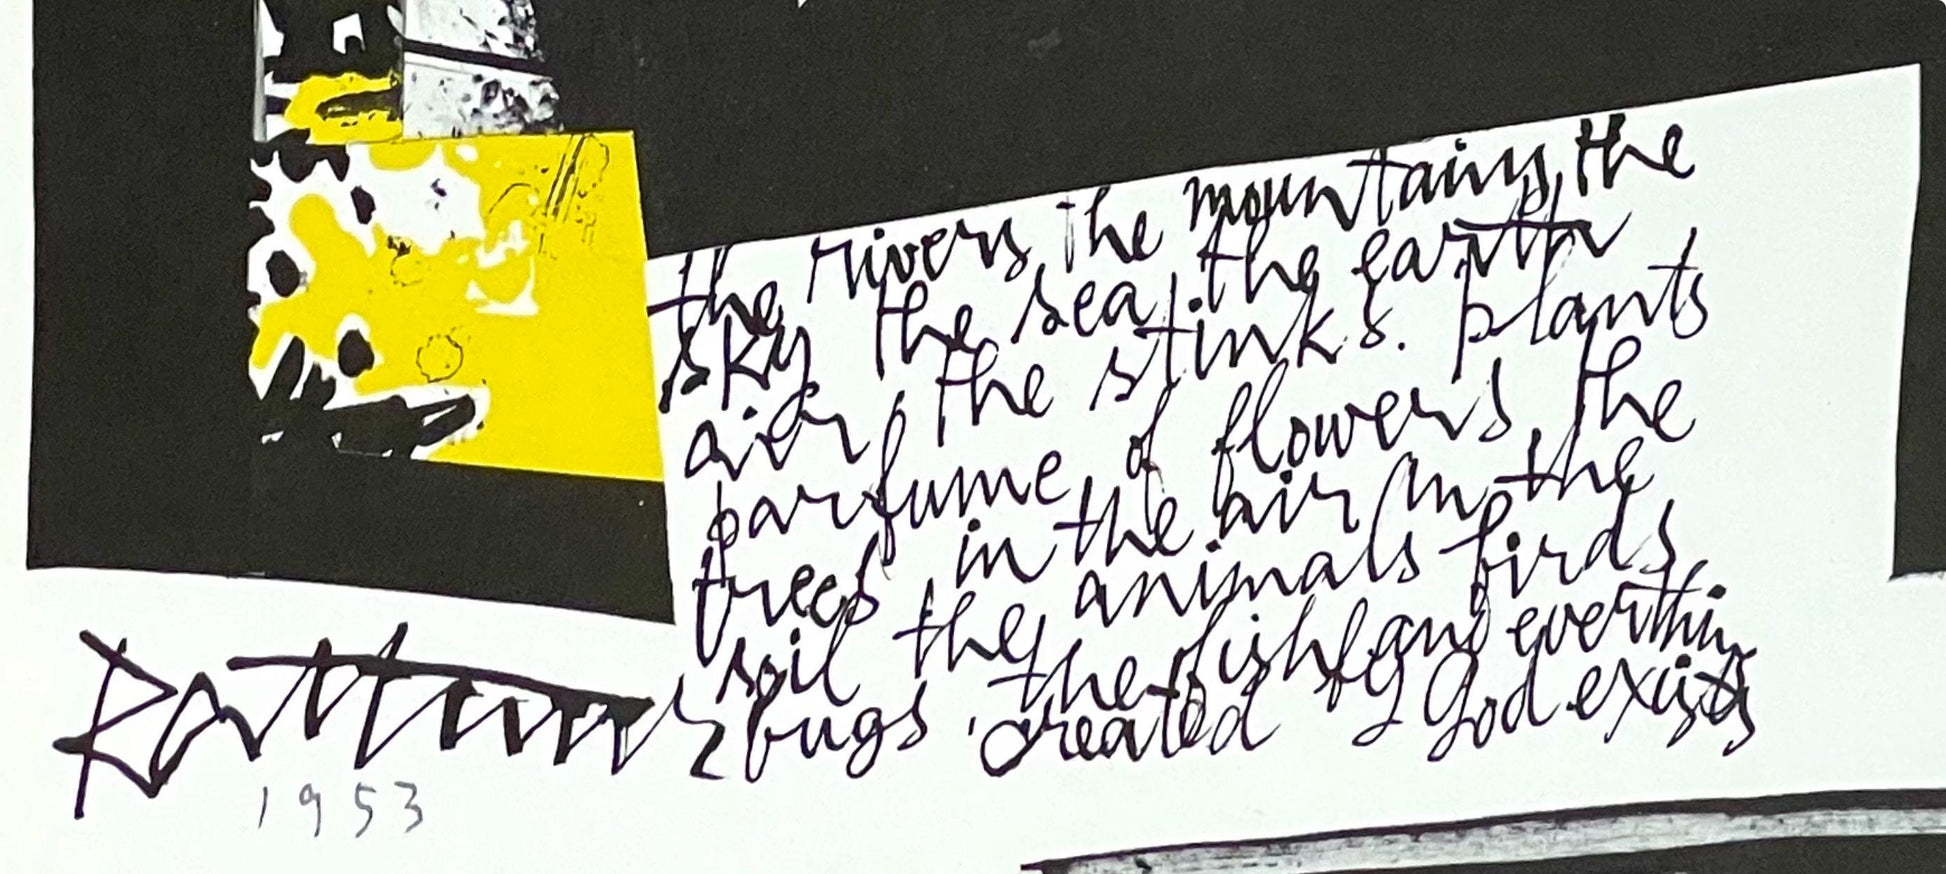 the rivers, the mountains, the
sky the sea, the earth
air, the stinks. plants
parfume of flowers, the
trees, in the air in the
soil the animals birds,
bugs. the fish and everthin
created g God exists
1953